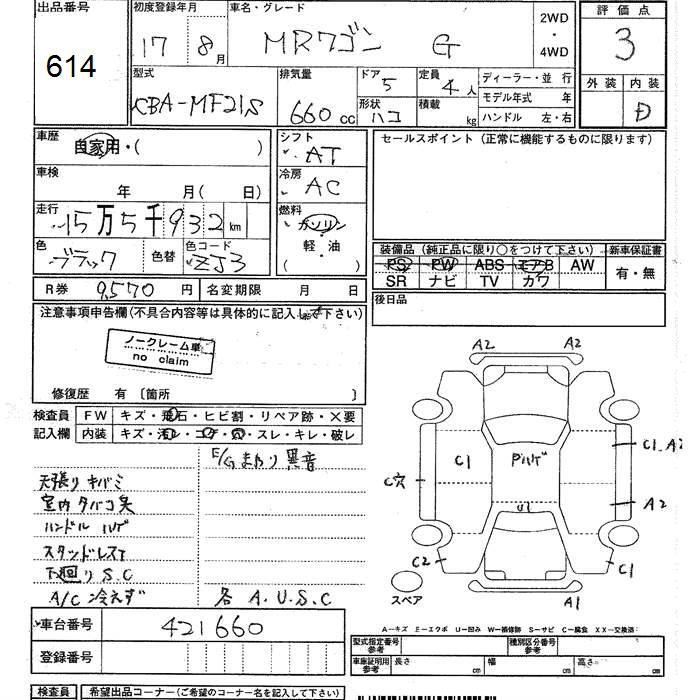 出品番号
614
初度登録年月
17 8月
車名・グレード
MRワゴン G
2WD
・
4WD
評価点
3
外装 内装
D
型式
CBA-MF21S
排気量
660 cc
ドア 5
形状 ハコ
定員 4 人
積載 kg
ディーラー・並行
モデル年式 年
ハンドル 左・右
車歴
自家用・( )
車検
年 月( 日)
走行
15万5千932 km
色
ブラック
色替
色コード
ZJ3
シフト
AT
冷房
AC
燃料
ガソリン
軽・油
( )
セールスポイント(正常に機能するものに限ります)
装備品(純正品に限り○をつけて下さい)
新車保証書
PS PW ABS エアB AW
SR ナビ TV カワ
有・無
R券 9,570 円
名変期限 月 日
後日品
注意事項申告欄(不具合内容等は具体的に記入して下さい)
ノークレーム車
no claim
修復歴 有 〔箇所 〕
検査員
記入欄
FW キズ・飛石・ヒビ割・リペア跡・×要
内装 キズ・汚レ・コゲ・穴・スレ・キレ・破レ
E/Gまわり異音
天張りキバミ
室内タバコ臭
ハンドル ハゲ
スタッドレスT
下廻りS.C
A/C 冷えず
各 A.U.S.C
A2 A2
C1
C穴
C1
A2
U1
C2
C1
A1
スペア
A−キズ E−エクボ U−凹み W−補修跡 S−サビ C−腐食 XX−交換済
車台番号
421660
登録番号
型式指定番号
参考
種別区分番号
参考
車庫証明用
参考
長さ cm
幅 cm
高さ cm
検査員
希望出品コーナー(ご希望のコーナー名を記入して下さい)